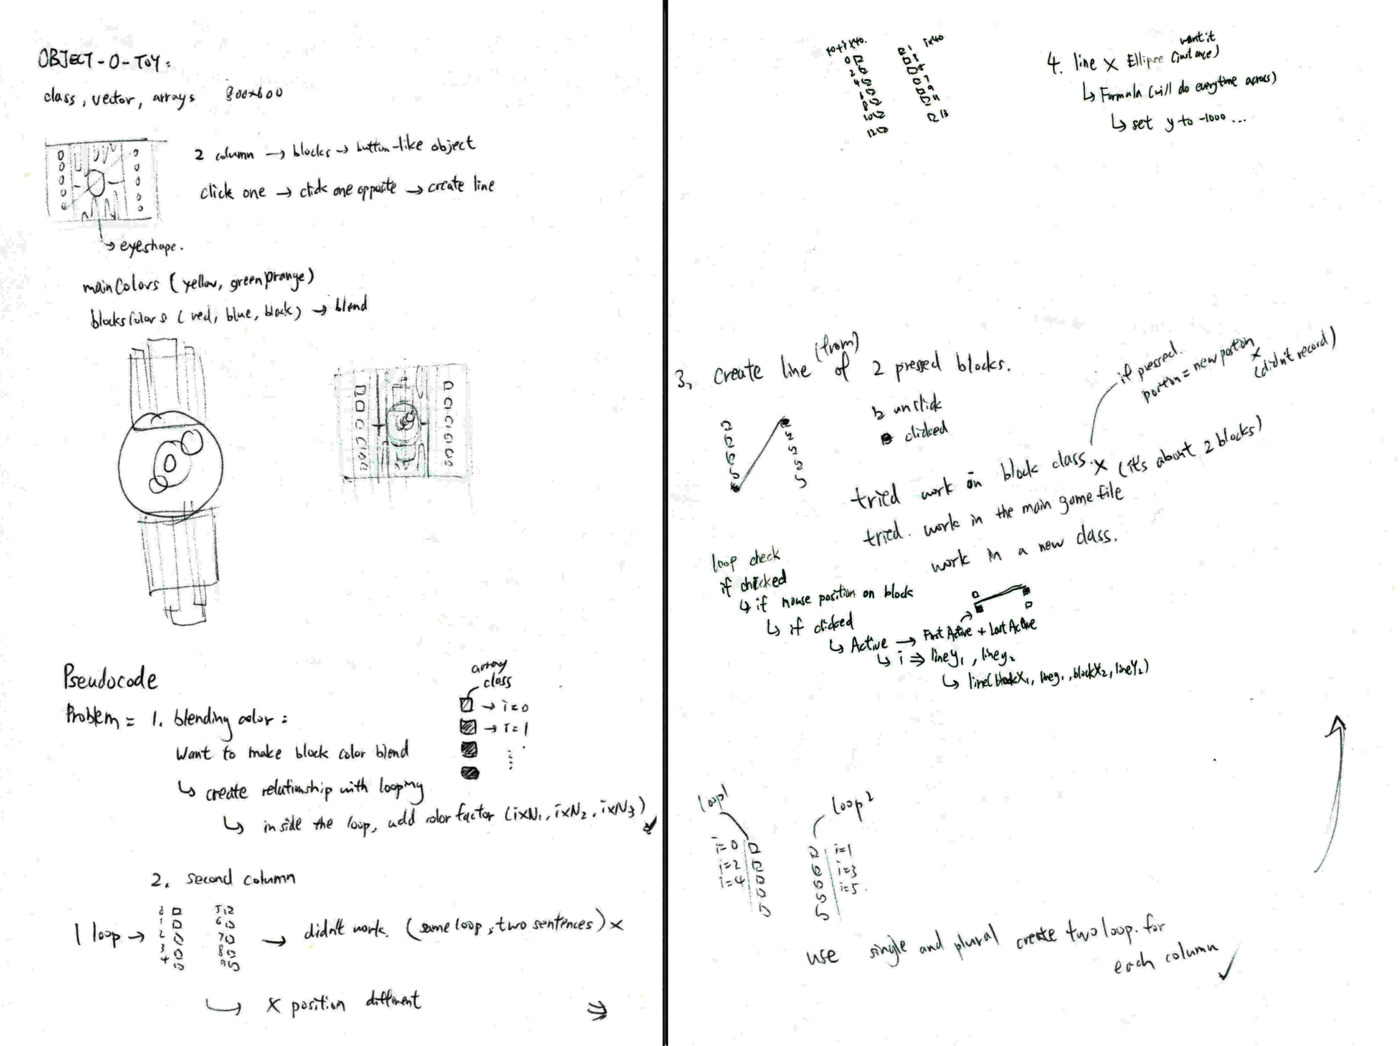 OBJECT-O-TOY:
class, vector, arrays 800x600
2 column → blocks → button-like object
click one → click one opposite → create line
→ eyeshape.
mainColors (yellow, green orange)
blocksColors (red, blue, black) → blend
Pseudocode
array
class
→ i=0
→ i=1
Problem = 1. blending color:
Want to make block color blend
↳ create relationship with looping
↳ inside the loop, add color factor (ixN1, ixN2, ixN3) ✓
2. second column
1 loop →
0
1
2
3
4
5
6
7
8
9
→ didn't work. (same loop, two sentences) x
↳ x position different
ix40
4. line x Ellipse (instance)
want it
↳ Formula (will do everytime across)
↳ set y to -1000 ...
3. create line of 2 pressed blocks.
(from)
unclick
clicked
if pressed.
position = new position
x
(didn't record)
tried work on block class. x (it's about 2 blocks)
tried. work in the main game file
work in a new class.
loop check
if clicked
↳ if mouse position on block
↳ if clicked
↳ Active → First Active + Last Active
↳ i ⇒ liney1, liney2
↳ line(blockX1, liney1, blockX2, lineY2)
loop1
loop2
i=0
i=2
i=4
i=1
i=3
i=5.
use single and plural create two loop. for
each column ✓